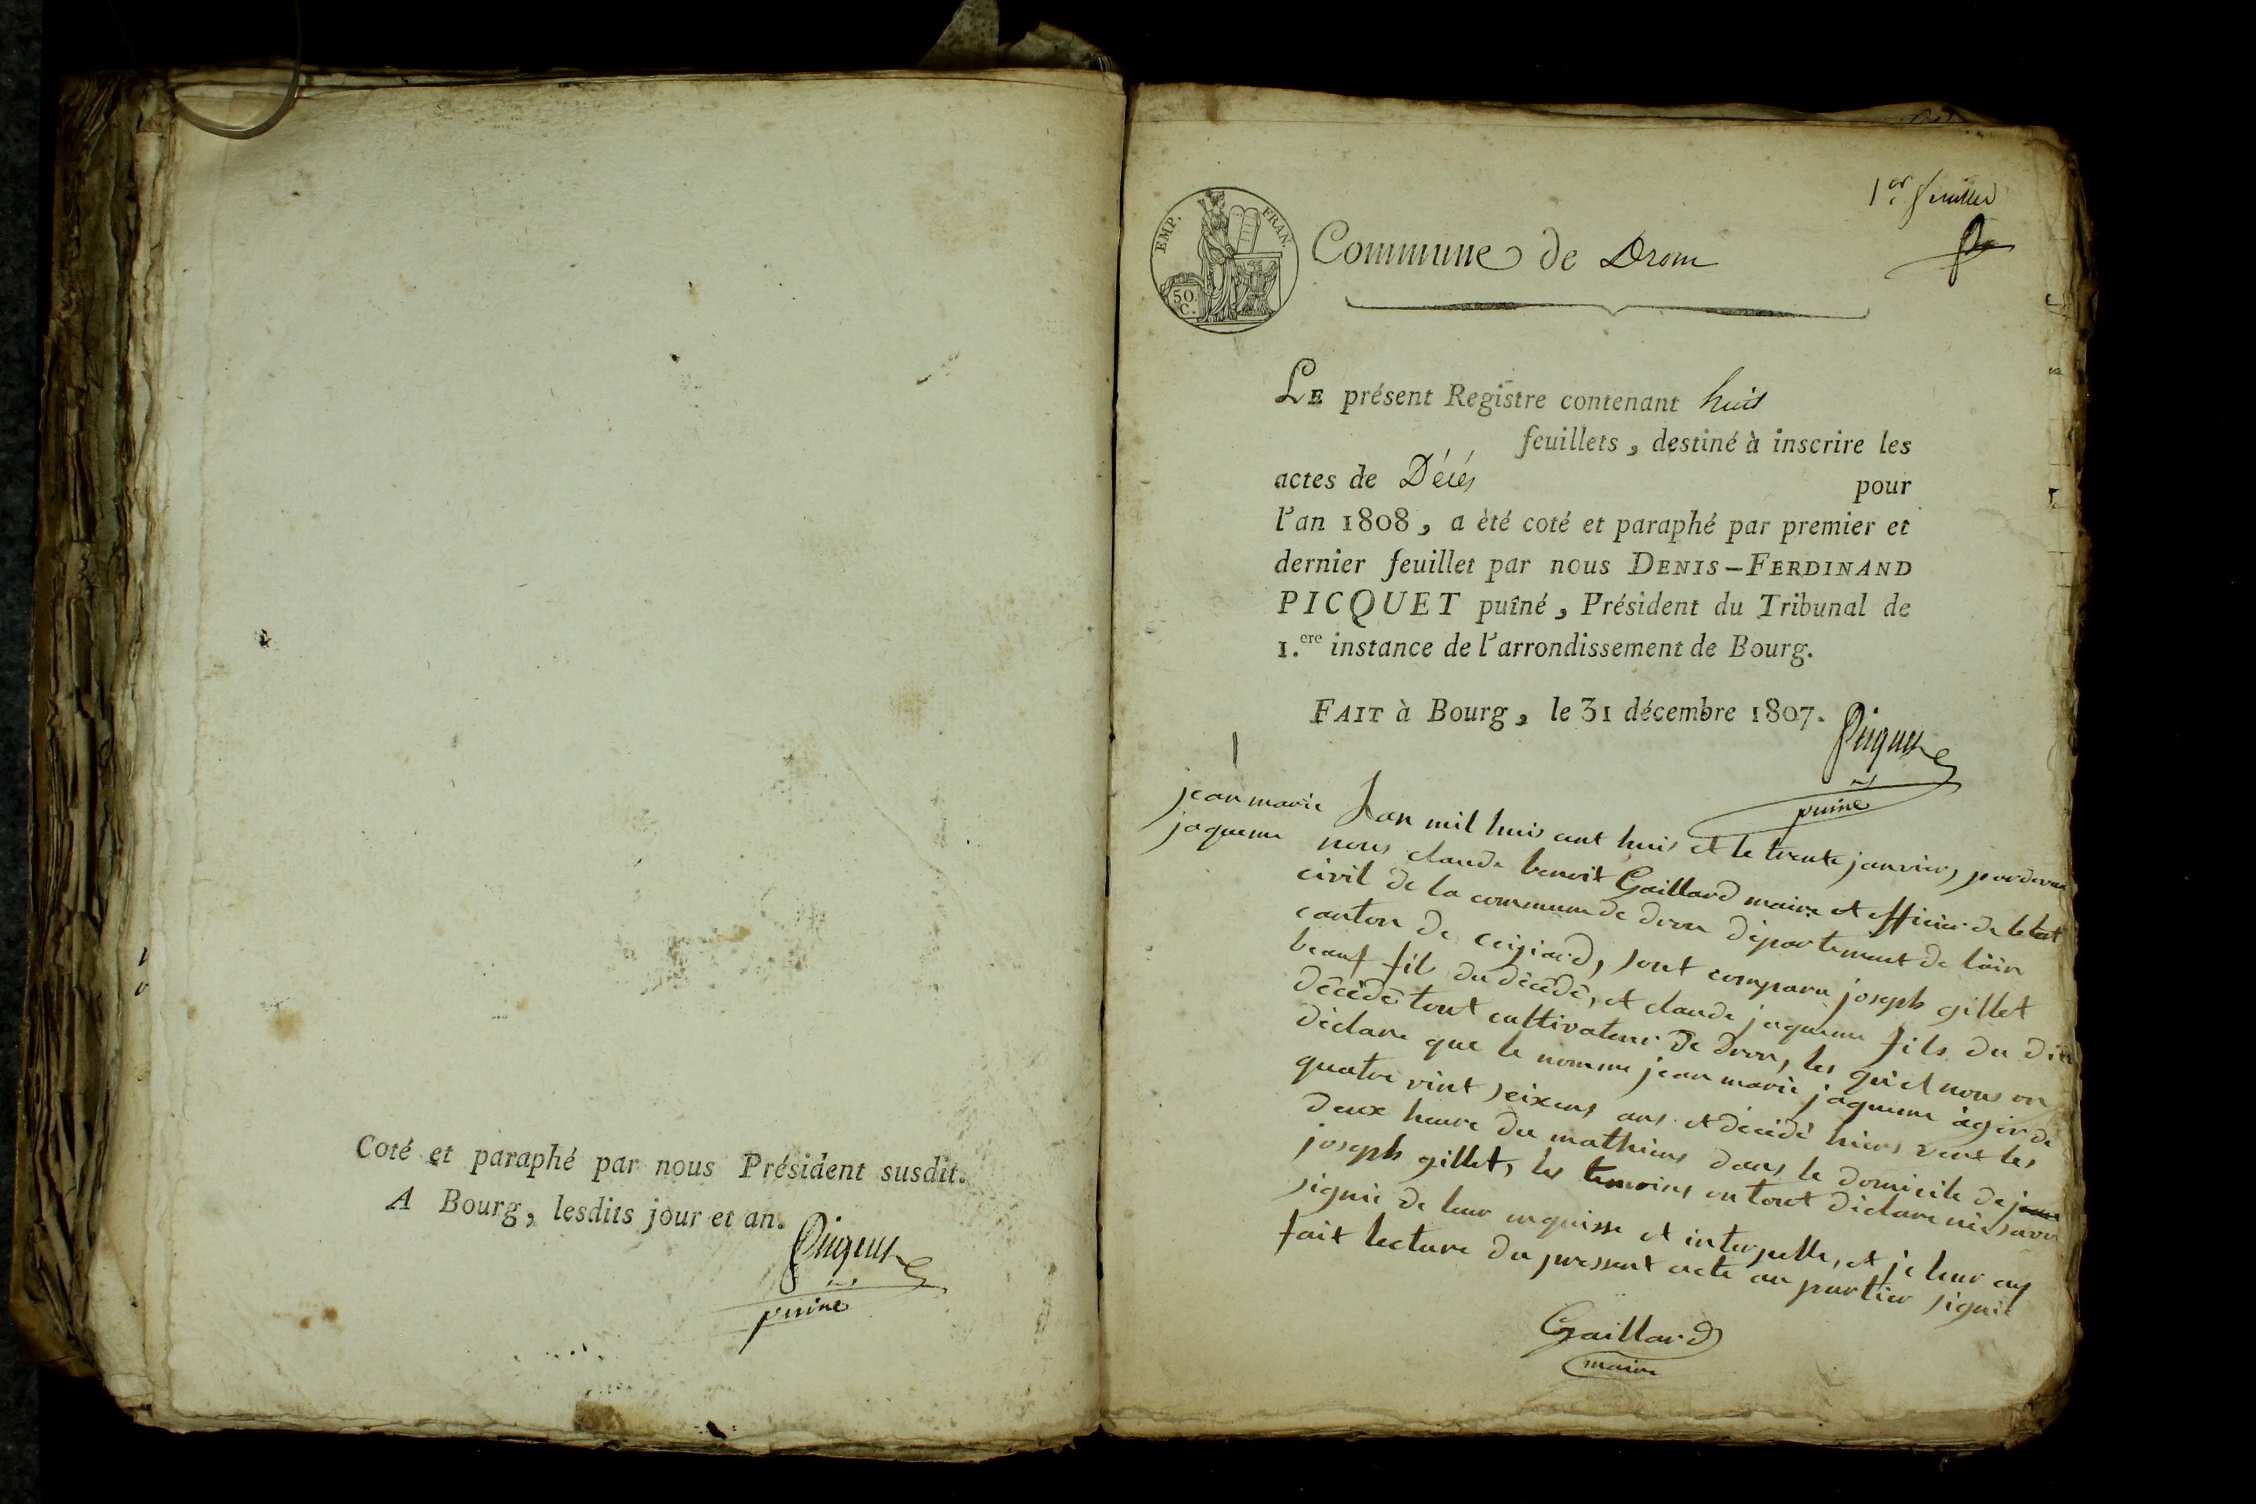 Coté et paraphé par nous Président susdit.
A Bourg, lesdits jour et an.
Picquet
puiné
1er feuillet
EMP. FRAN.
50. C.
Commune de Drom
LE présent Registre contenant huit
feuillets, destiné à inscrire les
actes de Décés pour
l'an 1808, a èté coté et paraphé par premier et
dernier feuillet par nous DENIS-FERDINAND
PICQUET puîné, Président du Tribunal de
1.ere instance de l'arrondissement de Bourg.
FAIT à Bourg, le 31 décembre 1807.
Picquet
puiné
1
jean marie
jaqueme
Lan mil huis cent huis et le trente janvier, pardevan
nous claude benoit Gaillard maire et officier de letat
civil de la commune de drom département de l'ain
canton de ceiziad, sont comparu joseph gillet
beauf fils du décédé, et claude jaqueme fils du dit
décédé tout cultivateur de drom, les qu'el nous on
déclare que le nomme jean marie jaqueme àger de
quatre vint seixeus ans et décédé hiers vent les
deux heure du mathiens dans le domicile de
joseph gillet, les temoins on tout déclare nie savoir
signie de leur enquisse et interpelle, et je leur ay
fait lecture du pressent acte au partier signié
Gaillard
maire